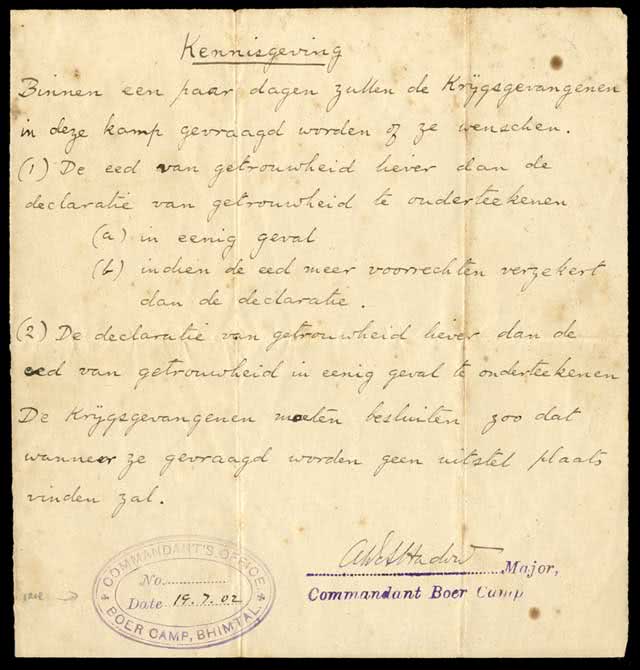 Kennisgeving
Binnen een paar dagen zullen de Krijgsgevangenen
in deze kamp gevraagd worden of ze wenschen.
(1) De eed van getrouwheid liever dan de
declaratie van getrouwheid te onderteekenen
(a) in eenig geval
(b) indien de eed meer voorrechten verzekert
dan de declaratie.
(2) De declaratie van getrouwheid liever dan de
eed van getrouwheid in eenig geval te onderteekenen
De Krijgsgevangenen moeten besluiten zoo dat
wanneer ze gevraagd worden geen uitstel plaats
vinden zal.
Major,
Commandant Boer Camp
COMMANDANT'S OFFICE
No.
Date 19.7.02
BOER CAMP, BHIMTAL